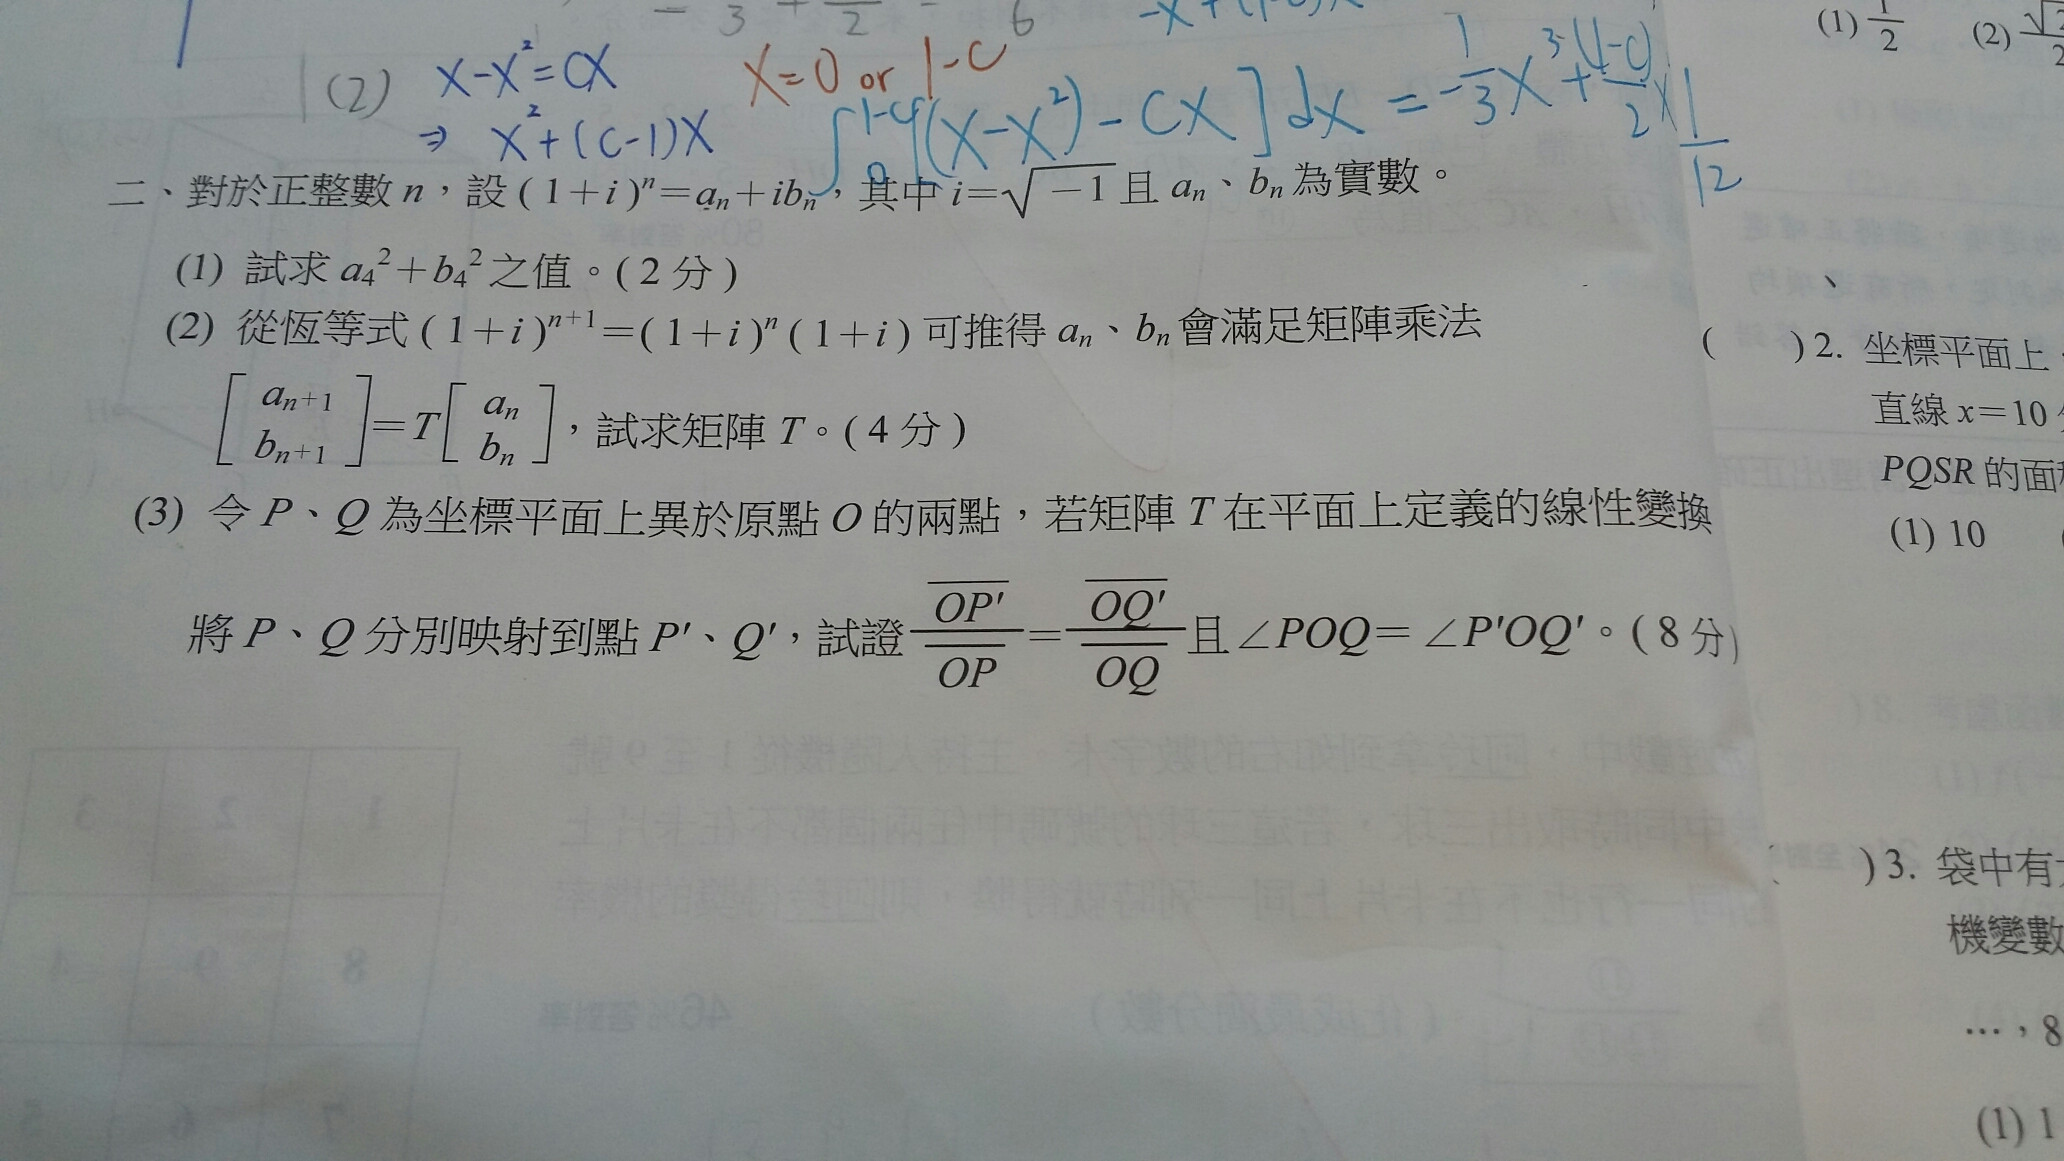 (2) x-x²=cx
⇒ x²+(c-1)x
x=0 or 1-c
∫₀^{1-c}[(x-x²)-cx]dx = -1/3 x³+(1-c)/2 x
1/12
二、對於正整數 n，設 (1+i)ⁿ=aₙ+ibₙ，其中 i=√-1 且 aₙ、bₙ 為實數。
(1) 試求 a₄²+b₄² 之值。(2 分)
(2) 從恆等式 (1+i)ⁿ⁺¹=(1+i)ⁿ(1+i) 可推得 aₙ、bₙ 會滿足矩陣乘法
[aₙ₊₁ bₙ₊₁]=T[aₙ bₙ]，試求矩陣 T。(4 分)
(3) 令 P、Q 為坐標平面上異於原點 O 的兩點，若矩陣 T 在平面上定義的線性變換
將 P、Q 分別映射到點 P'、Q'，試證 OP'/OP=OQ'/OQ 且∠POQ=∠P'OQ'。(8 分)
(1) 1/2 (2)
( )2. 坐標平面上
直線 x=10
PQSR 的面
(1) 10
)3. 袋中有
機變數
…，8
(1) 1